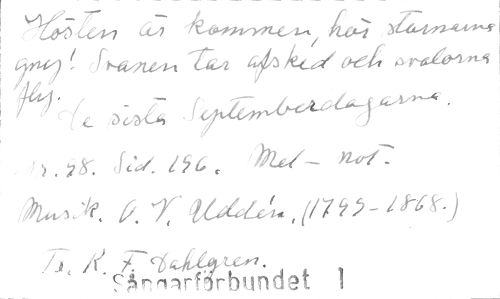 Hösten är kommen, hör stormarna
gny! Svanen tar afsked och svalorna
fly.
De sista Septemberdagarna.
Nr. 98. Sid. 196. Mel- not.
Musik. O. V. Uddén. (1799-1868.)
Te. K. F. Dahlgren.
Sångarförbundet 1